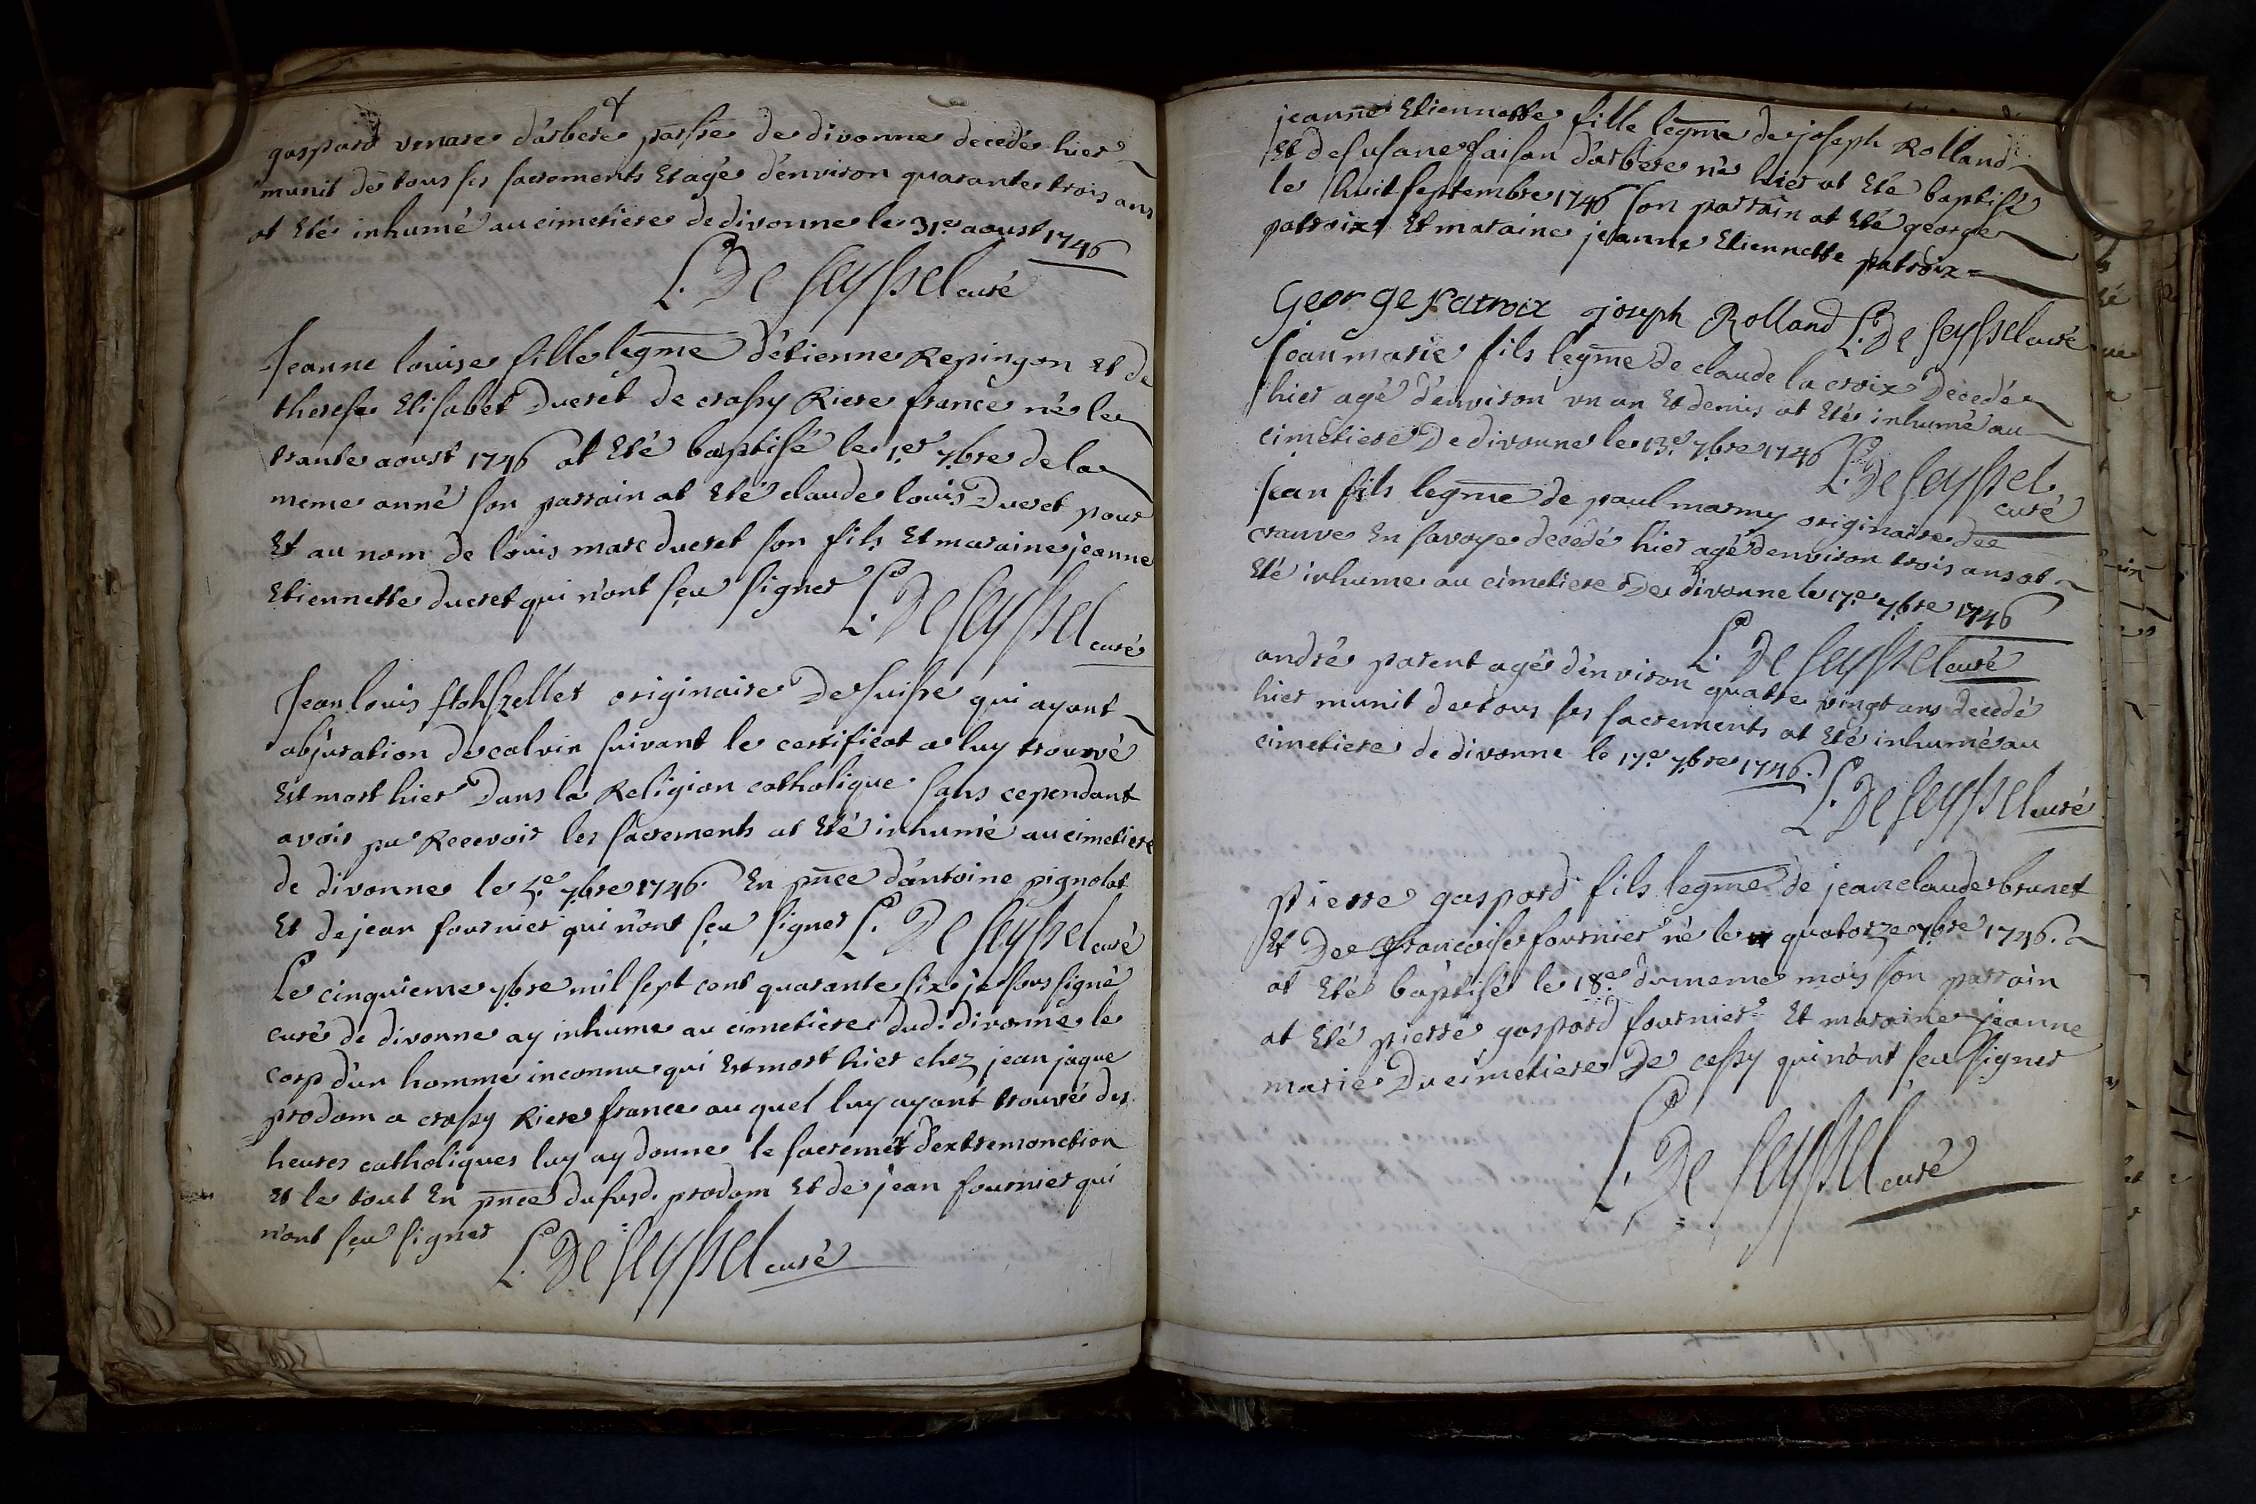 gaspard vinare d'arbere parsse de divonne decedé hier
munit de tous ses sacrements Et agé d'environ quarante trois ans
at Eté inhumé au cimetiere de divonne le 31.e aoust 1746
L. De Seyssel curé
Jeanne louise fille legme d'étienne Repingon et de
therese Elisabet Dueret de crassy Riere france né le
trante aoust 1746 at Eté baptisé le 1.er 7.bre de la
meme anné son parrain at Eté claude louis Dueret pour
Et au nom de louis marc dueret son fils Et maraine jeanne
Etiennette dueret qui n'ont sçu signer L. De Seyssel curé
Jean louis originaire De suisse qui ayant
abjuration de calvin suivant le certificat a luy trouvé
Est mort hier Dans la Religion catholique sans cependant
avoir pu Recevoir les sacrements at Eté inhumé au cimetiere
de divonne le 5.e 7.bre 1746. En pnce d'antoine pignolat
Et de jean fournier qui n'ont sçu signer L. De Seyssel curé
Le cinquieme 7.bre mil sept cent quarante six je sous signé
curé de divonne ay inhume au cimetiere dud. divonne le
corp d'un homme inconnu qui Est mort hier chez jean jaque
prodom a crassy Riere france au quel luy ayant trouvé des
heures catholiques luy ay donne le sacremet d'extremonction
et le tout En pnce du susd. prodom Et de jean fournier qui
n'ont sçu signer L. De Seyssel curé
jeanne Etiennette fille legme de joseph Rolland
Et de susane faisan d'arbere né hier at Eté baptisé
le huit septembre 1746 son parrain at Eté george
patroix Et maraine jeanne Etiennette patroix =
George Patroix joseph Rolland L. De Seyssel curé
Jean marie fils legme de claude la croix Decedé
hier agé d'environ un an Et demis at Eté inhumé au
cimetiere De divonne le 13.e 7.bre 1746 L. De Seyssel
curé
Jean fils legme de paul marmy originaire de
cranve En savoye decedé hier agé d'environ trois ans at
Eté inhume au cimetiere De divonne le 17.e 7.bre 1746
L. De Seyssel curé
andré parent agé d'environ quatre vingt ans decedé
hier munit de tous ses sacrements at Eté inhumé au
cimetiere de divonne le 17.e 7.bre 1746.
L. De Seyssel curé
Pierre gaspard fils legme de jean claude brunet
Et De francoise fournier né le quatorze 7.bre 1746.
at Eté baptisé le 18.e du meme mois son parrain
at Eté pierre gaspard fournier Et maraine jeanne
marie Du cimetiere De cessy qui n'ont sçu signer
L. De Seyssel curé